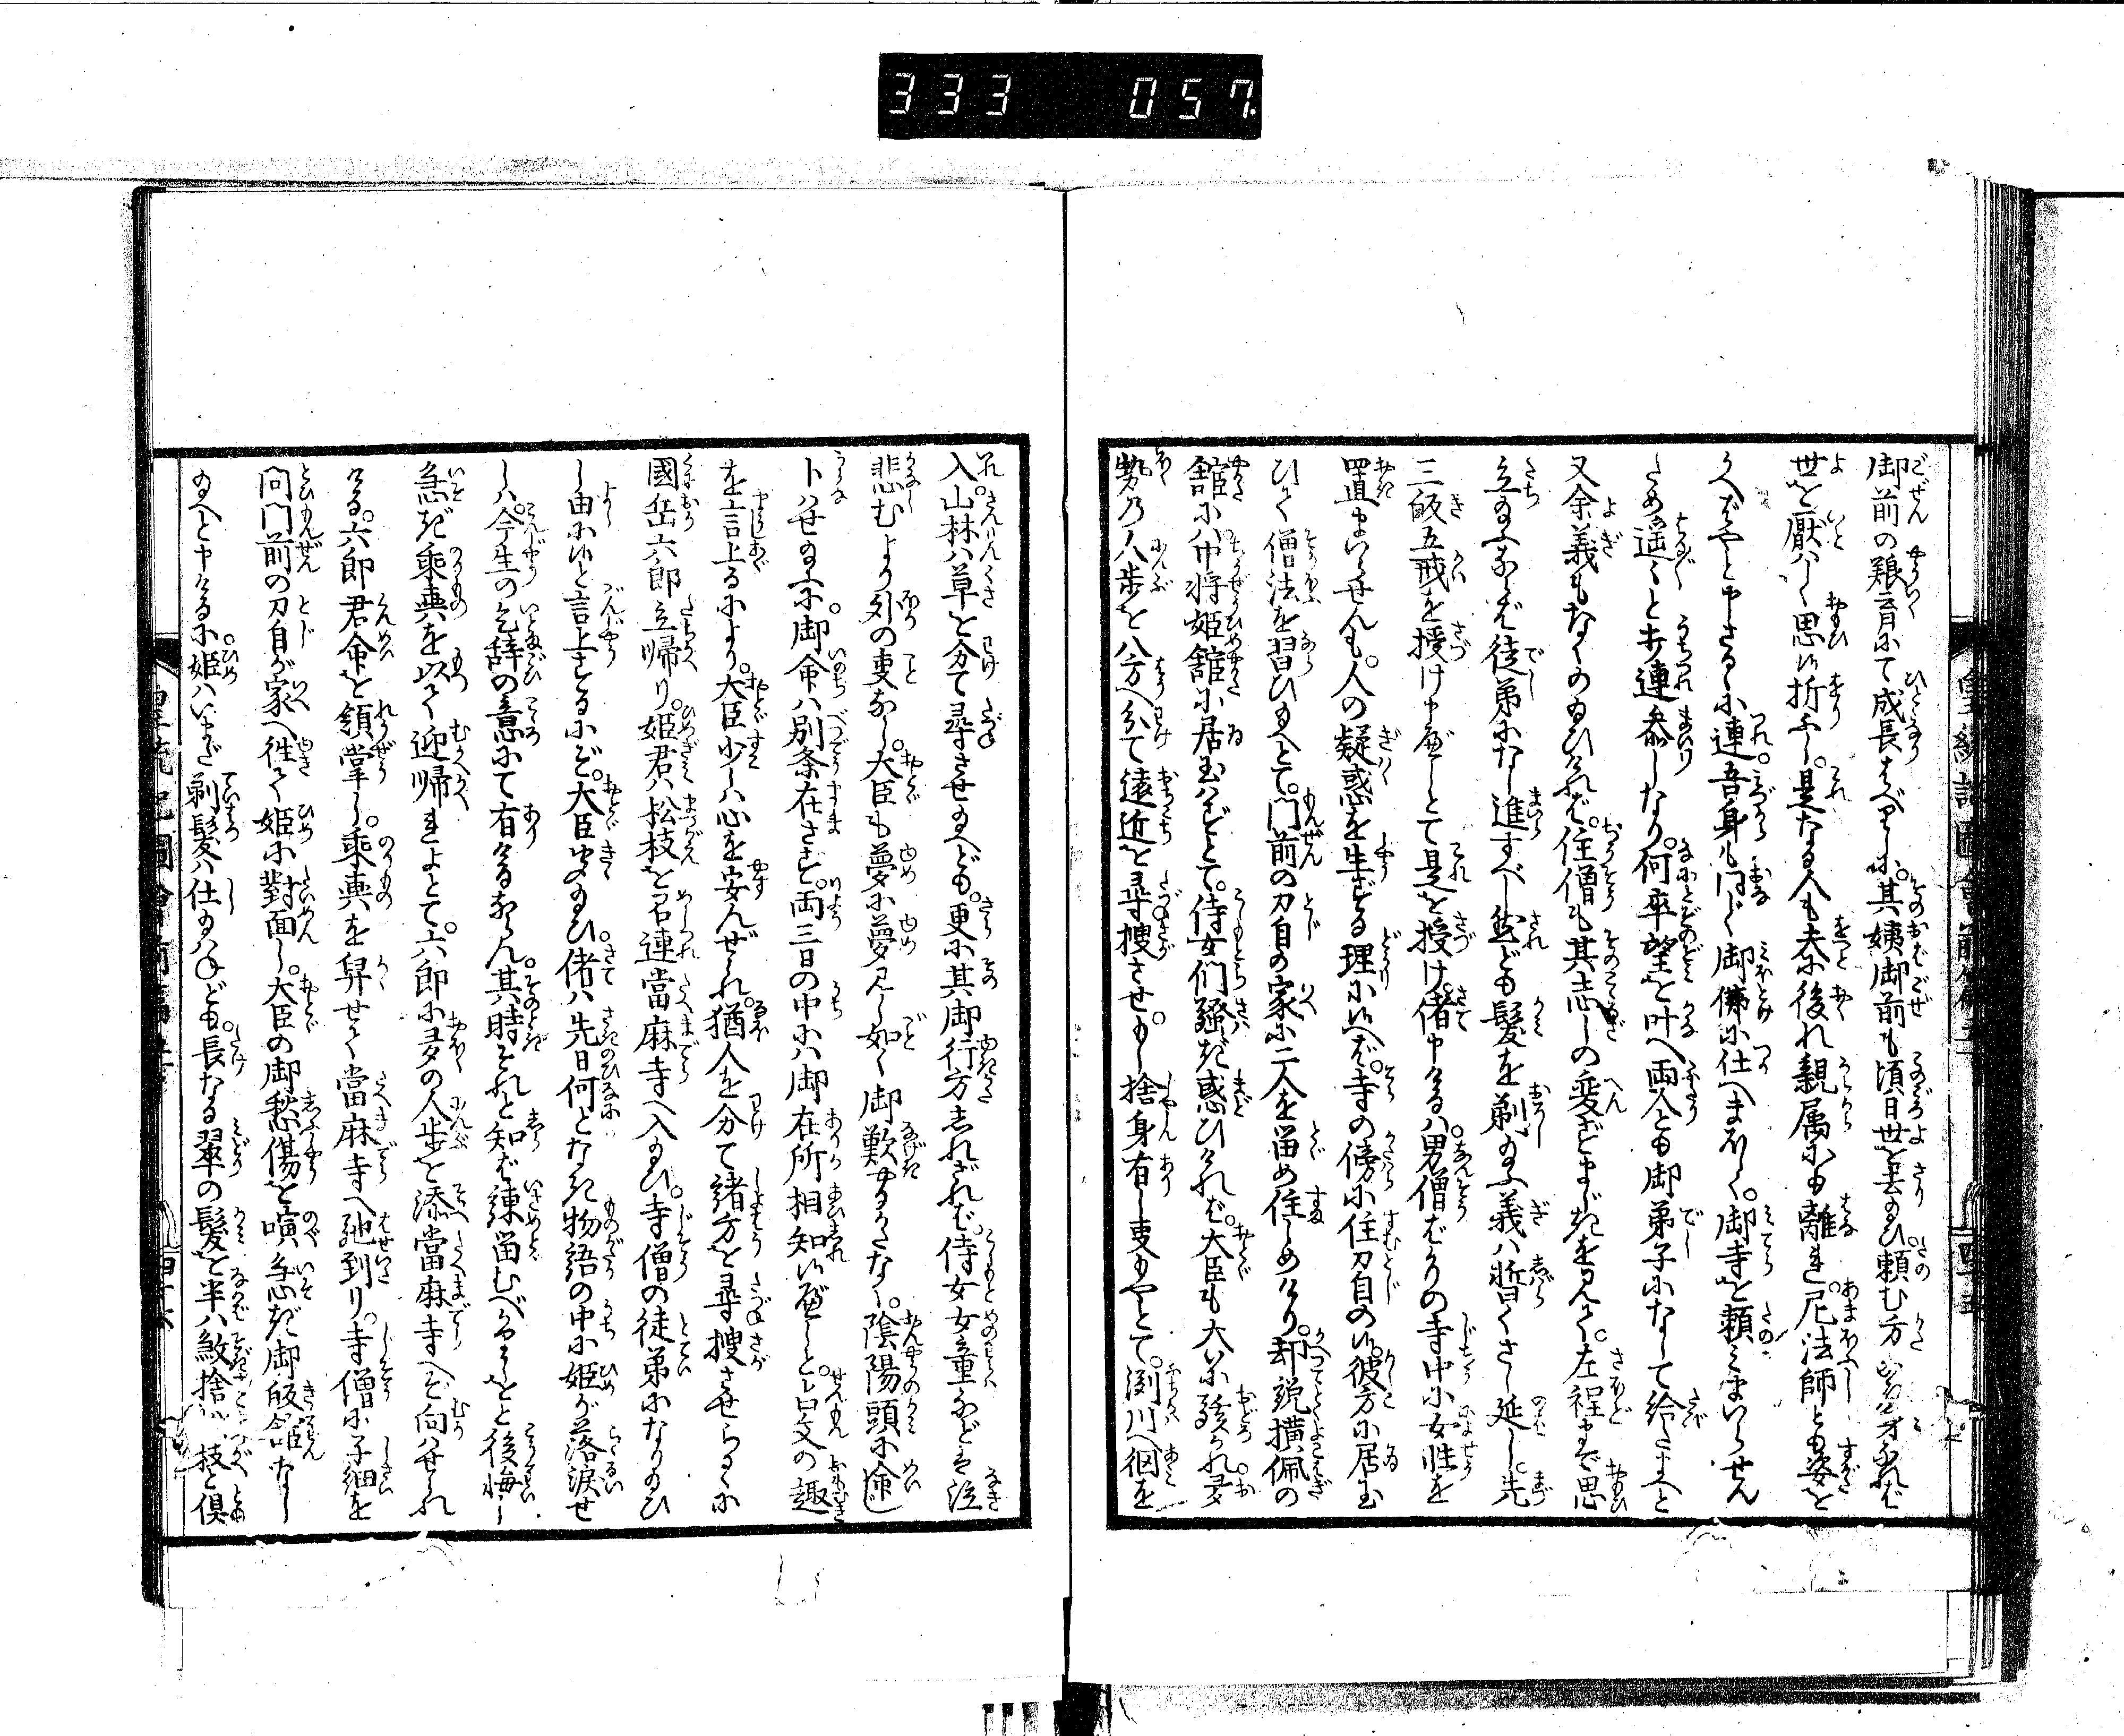 333 057
御前の養育にて成長侍べりしに。其姨御前も頃日世を去給ひ。頼む方なき身なれば
世を厭はしく思ひ折ふし。是なる人も夫に後れ親属にも離れ。尼法師とも姿を
かへばやと申さるゝに連。吾身も同じく御佛に仕へまほしく。御寺を頼みまいらせん
ため遥〻と歩連参しなり。何卒望を叶へ両人とも御弟子になして給はれと
又余義もなくのたまひければ。住僧も其志しの変ずまじきを見て。左程まで思
立給ふならば徒弟になし進すべし然ども髪を剃給ふ義は暫くさし延し。先
三皈五戒を授け申べしとて是を授け。偖申けるは。男僧ばかりの寺中に女性を
置まいらせんも。人の疑惑を生ずる理に候へば。寺の傍に住刀自の候。彼方に居玉
ひて僧法を習ひ給へとて。門前の刀自の家に二人を留め住しめけり。却説横佩の
舘には中将姫舘に居玉はずとて。侍女们騒ぎ惑ひければ。大臣も大に駭かれ。多
勢乃人歩を八方へ分て遠近を尋捜させ。もし捨身有し事もやとて。渕川へ網を
入。山林は草を分て尋させ給へども。更に其御行方しれざれば。侍女女童などは泣
悲むより外の事なし。大臣も夢に夢見し如く御歎大かたならず。陰陽頭に命じ
卜はせ給ふに。御命は別条在さず。両三日の中には御在所相知候べしと。占文の趣
を言上るにより。大臣少しは心を安んぜられ。猶人を分て諸方を尋捜させらるゝに
國岳六郎立帰り。姫君は松枝を召連當麻寺へ入給ひ。寺僧の徒弟になり給ひ
し由に候と言上するにぞ。大臣聞給ひ。偖は先日何となき物語の中に姫が落涙せ
しは。今生の乞辞の意にて有けるならん。其時それと知ば諫留むべかりしをと後悔し
急ぎ乗輿を以て迎帰れよとて。六郎に多の人歩を添當麻寺へぞ向はせられ
ける。六郎君命を領掌し。乗輿を舁せて當麻寺へ馳到り。寺僧に子細を
問門前の刀自が家へ徃て姫に對面し。大臣の御愁傷を喧急ぎ御皈舘なし
給へと申けるに。姫はいまだ剃髪は仕給はねども。長なる翠の髪を半は截捨 枝と倶